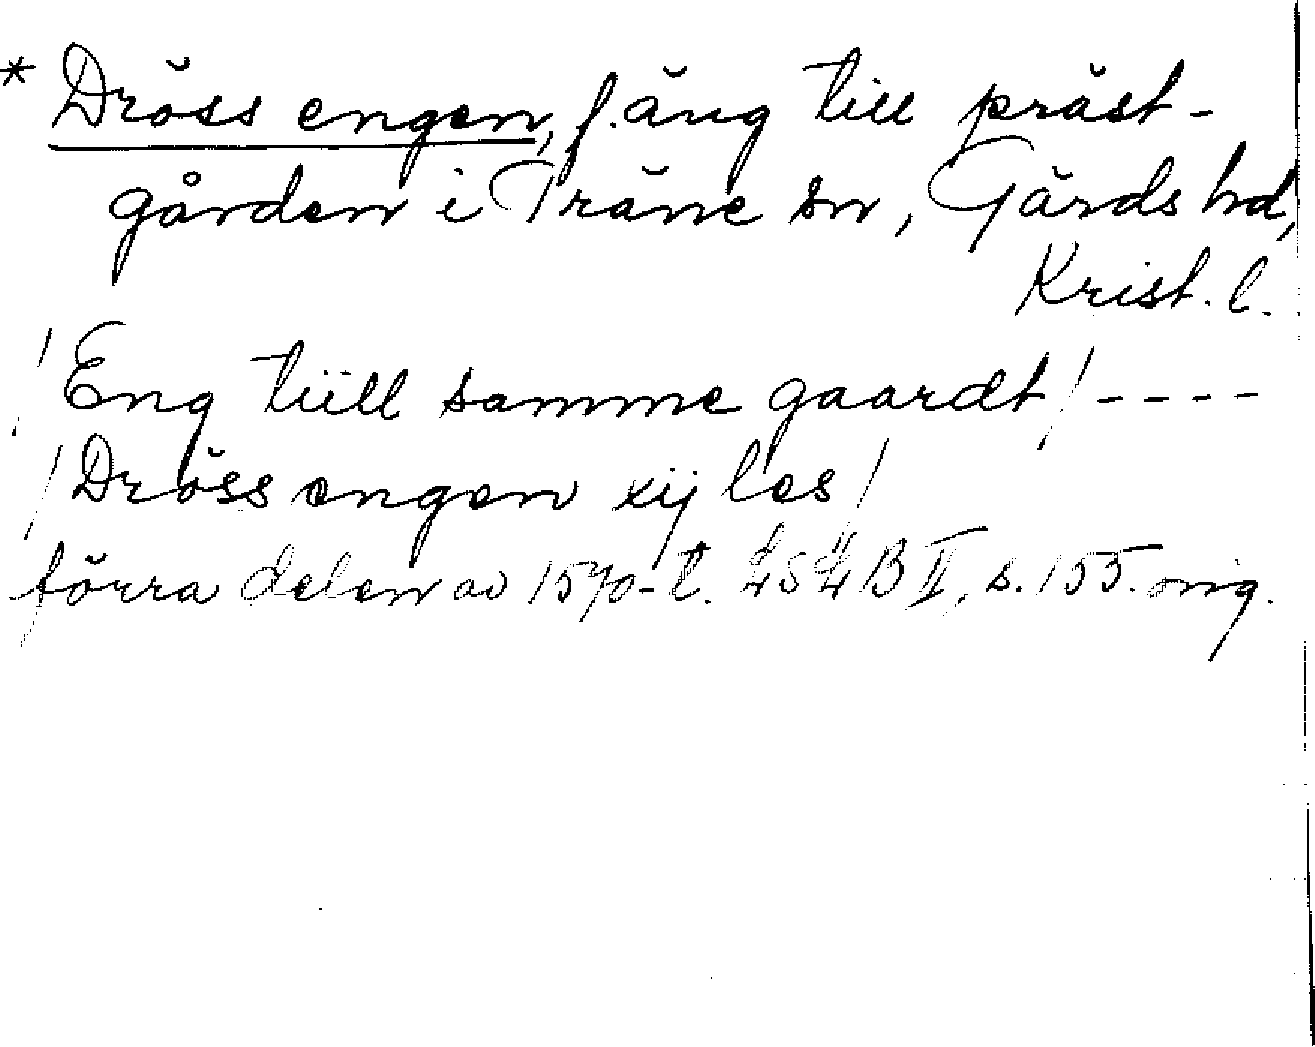 * Dröss engen, f. äng till präst-
gården i Träne sn, Gärds hd,
Krist. l.
/ Eng tiill samme gaardt / ----
/ Dröss engen xij les /
förra delen av 1570-t. LSLB II, s. 155. orig.